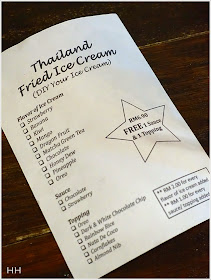 Thailand
Fried Ice Cream
(DIY Your Ice Cream)
Flavor of Ice Cream
Strawberry
Banana
Kiwi
Mango
Dragon Fruit
Matcha Green Tea
Chocolate
Honey Dew
Pineapple
Oreo
RM6.90
FREE 1 Sauce
& 1 Topping
Sauce
Chocolate
Strawberry
Topping
Oreo
Dark & White Chocolate Chip
Rainbow Rice
Nata De Coco
Cornflakes
Almond Nib
** RM 2.00 for every
flavor of ice cream added
** RM 1.00 for every
sauce/ topping added
HH